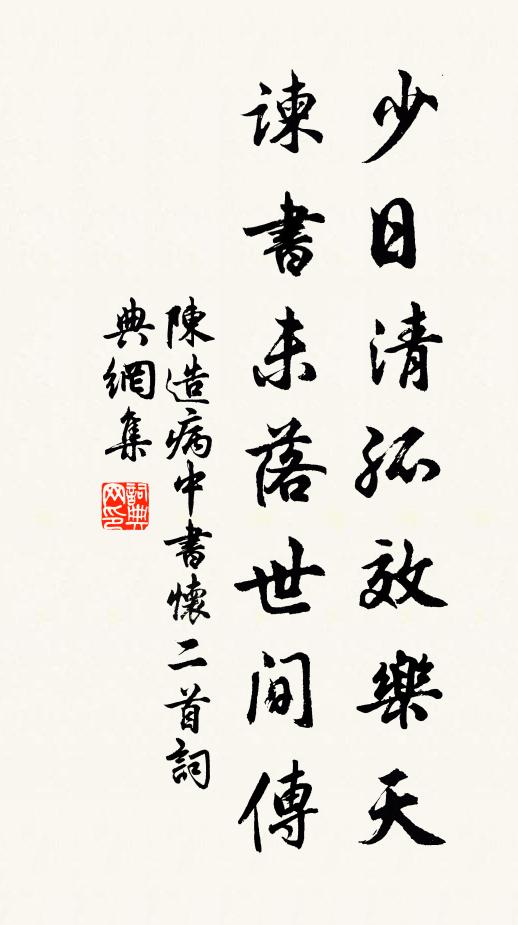 少日清孤效樂天
諫書未落世間傳
陳造病中書懷二首詞
典網集
詞典
网印